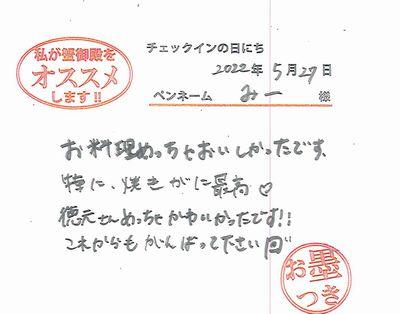 私が蟹御殿を
オススメ
します!!
チェックインの日にち
2022年 5月27日
ペンネーム みー 様
お料理めっちゃおいしかったです、
特に、焼きがに最高♡
徳元さんめっちゃかわいかったです!!
これからもがんばって下さい
お墨
つき